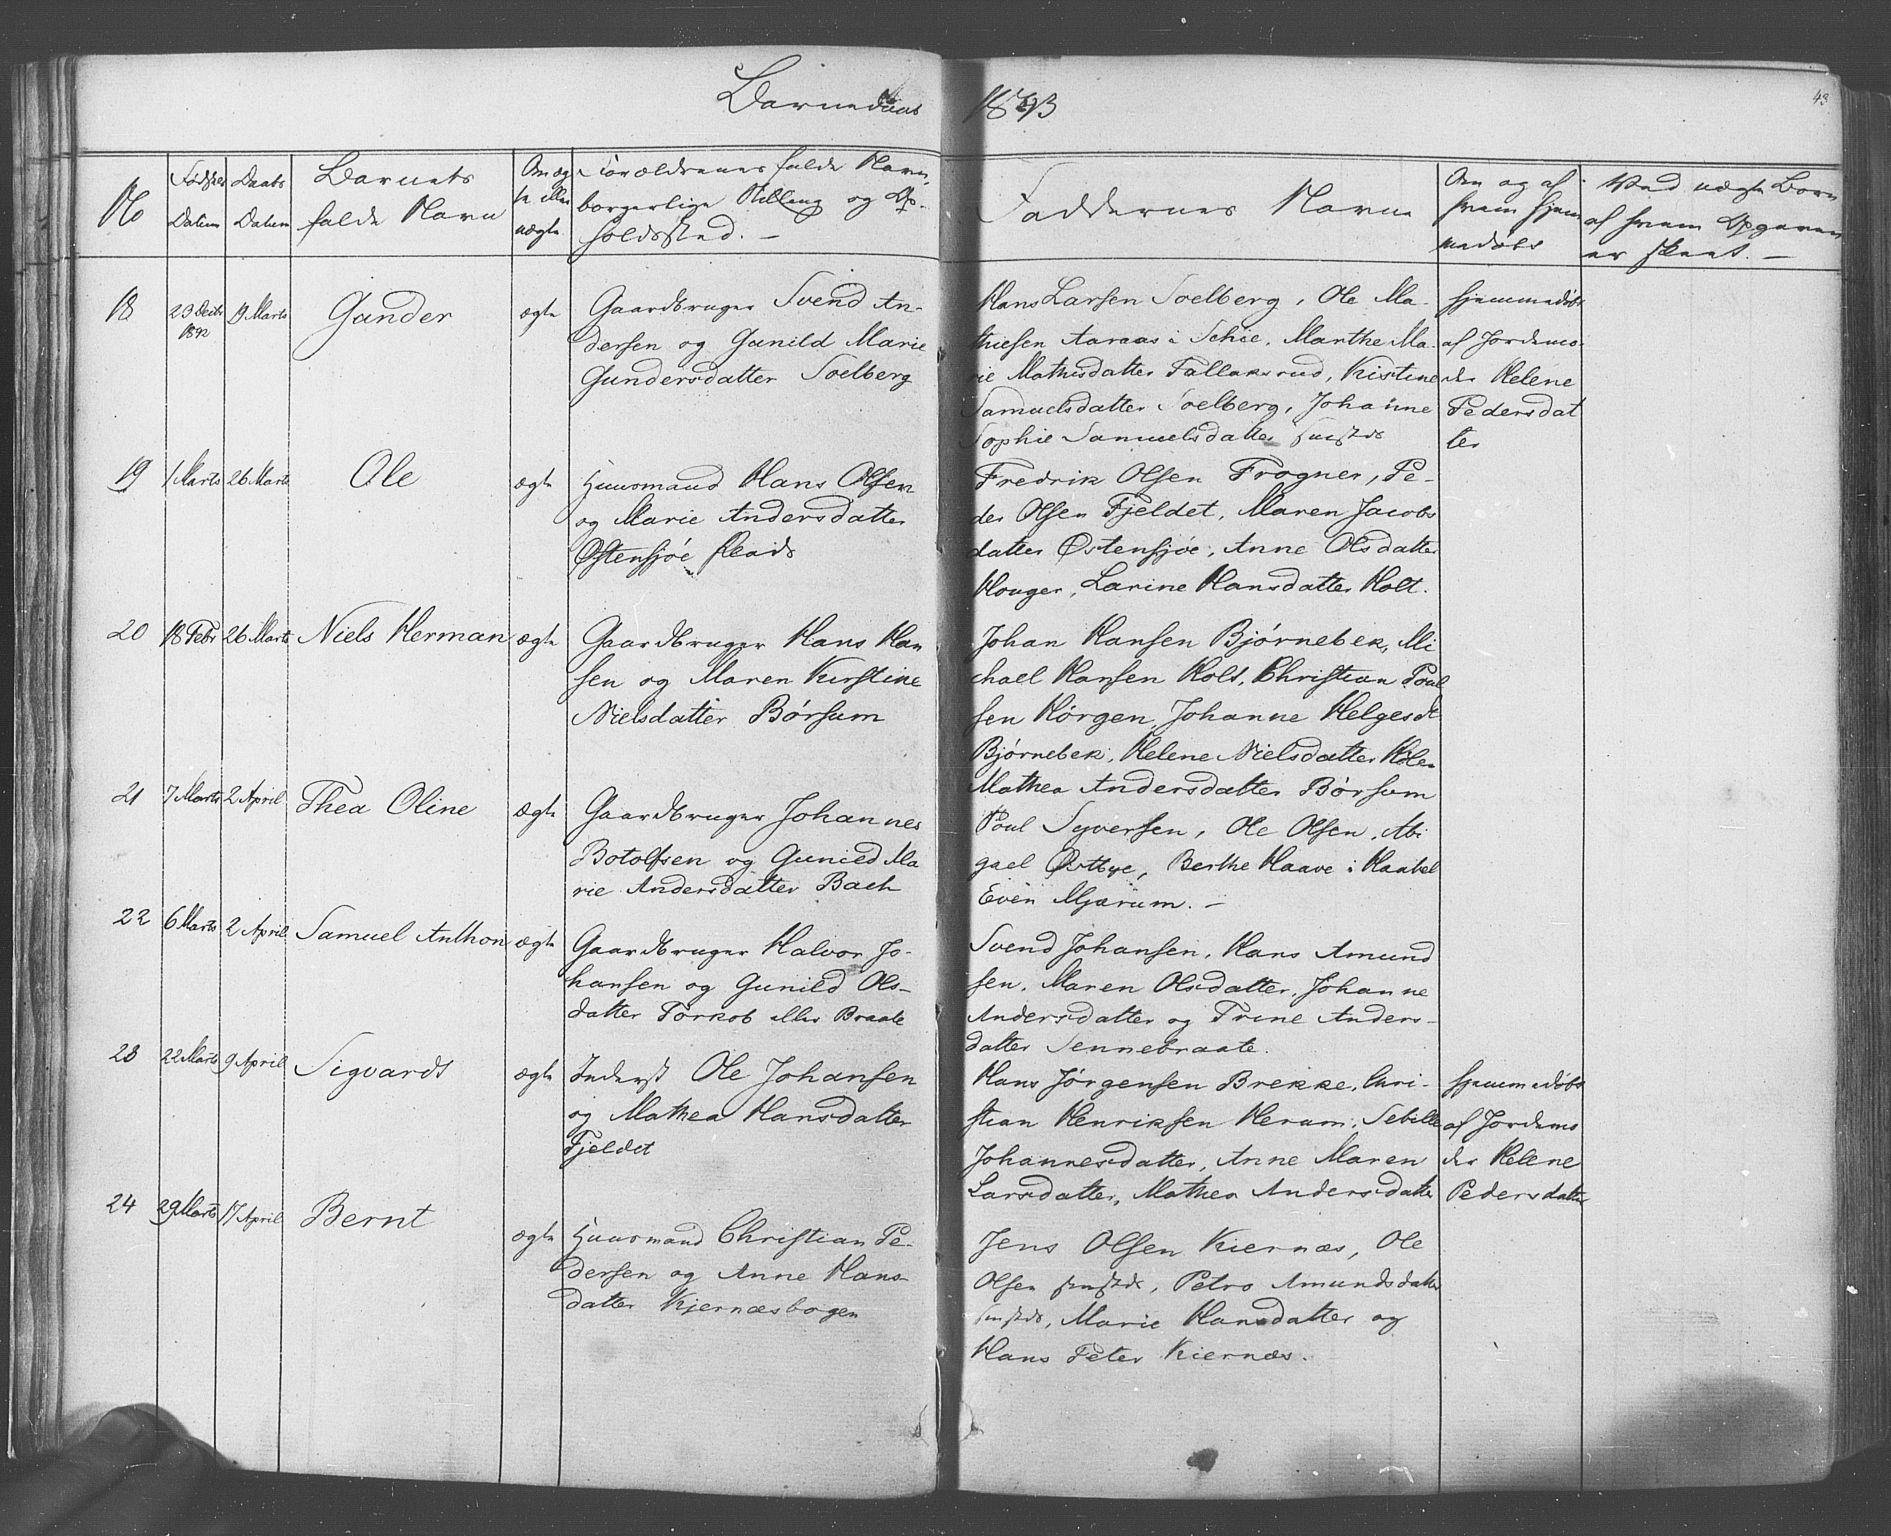 Barnedaab 1843
43
No
Fødsels Datum
Daabs Datum
Barnets
fulde Navn
Om æg-
te eller
uægte
Forældrenes fulde Navn,
borgerlige Stilling og Op-
holdssted. —
Faddernes Navne
Om og af
hvem hjem
medøbt
Ved uægte Born
af hvem Opgaven
er skeet. —
18
23 Decbr
1842
19 Marts
Gunder
ægte
Gaardbruger Svend An-
dersen og Gunild Marie
Gundersdatter Soelberg
Hans Larsen Soelberg, Ole Ma-
thiesen Aaraas i Schie, Marthe Ma-
rie Mathisdatter Fallaksrud, Kistine
Samuelsdatter Soelberg, Johanne
Sophie Samuelsdatter smstds
Hjemmedøbt
af Jordemo-
der Helene
Pedersdat
ter
19
1 Marts
26 Marts
Ole
ægte
Huusmand Hans Olsen
og Marie Andersdatter
Østensjøe
Fredrik Olsen Frogner, Pe-
der Olsen Fjeldet, Maren Jacobs
datter Østensjøe, Anne Olsdatter
Houger, Larine Hansdatter Holt.
20
18 Febr
26 Marts
Niels Herman
ægte
Gaardbruger Hans Han
sen og Maren Kirstine
Nielsdatter Børsum
Johan Hansen Bjørnebek, Mi
chael Hansen Holt, Christian Poul
sen Hørgen, Johanne Helgesdt
Bjørnebek, Helene Nielsdatter
Mathea Andersdatter Børsum
21
7 Marts
2 April
Thea Oline
ægte
Gaardbruger Johannes
Botolfsen og Gunild Ma
rie Andersdatter Bach
Poul Syversen, Ole Olsen, Abi
gael Østbye, Berthe Haave i Haabøl
Even Mjærum. —
22
6 Marts
2 April
Samuel Anthon
ægte
Gaardbruger Halvor Jo-
hansen og Gunild Ols-
datter Torkob eller Braate
Svend Johansen, Hans Amund
sen, Maren Olsdatter, Johanne
Andersdatter og Trine Anders-
datter Sennebraate.
23
22 Marts
9 April
Sigvardt
ægte
Inderst Ole Johansen
og Mathea Hansdatter
Fjeldet
Hans Jørgensen Brekke, Chri-
stian Henriksen Heram, Sebille
Johannesdatter, Anne Maren
Larsdatter, Mathea Andersdatter
Hjemmedøbt
af Jordemo
der Helene
Pedersdatter
24
29 Marts
17 April
Bernt
ægte
Huusmand Christian Pe-
dersen og Anne Hans-
datter Kjernæsbogen
Jens Olsen Kiernæs, Ole
Olsen smstds, Petro Amundsdatter
smstds, Marie Hansdatter og
Hans Peter Kiernæs.